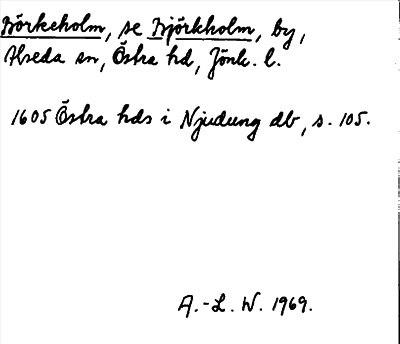 Björkeholm, se Björkholm, by,
Alseda sn, Östra hd, Jönk. l.
1605 Östra hds i Njudung db, s. 105.
A.-L. W. 1969.